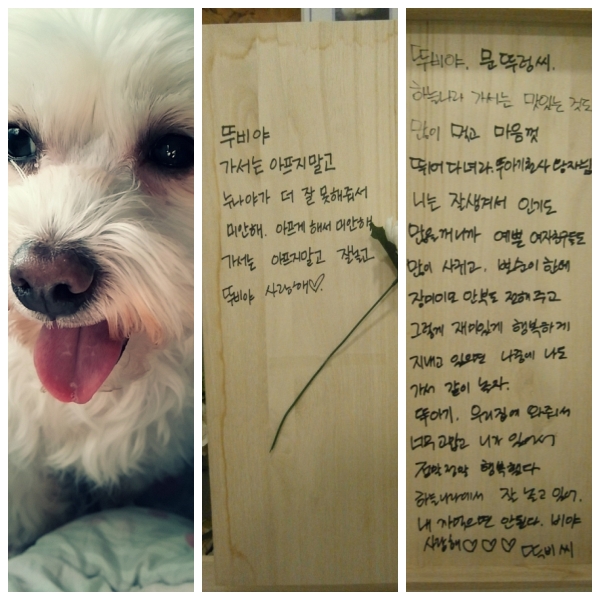 뚜비야
가서는 아프지말고
누나야가 더 잘 못해줘서
미안해. 아프게 해서 미안해
가서는 아프지말고 잘놀고
뚜비야 사랑해♡.
뚜비야. 문뚜렁씨.
하늘나라 가서는 맛있는 것도
많이 먹고 마음껏
뛰어다녀라. 뚜아기천사 왕자님
너는 잘생겨서 인기도
많을꺼니까 예쁜 여자친구들도
많이 사귀고.
장미이모 안부도 전해주고
그렇게 재미있게 행복하게
지내고 있으면 나중에 나도
가서 같이 놀자.
뚜아기. 우리집에 와줘서
너무고맙고 니가 있어서
정말정말 행복했다
하늘나라에서 잘 놀고 있어.
내 까먹으면 안된다. 비야
사랑해♡♡♡ 뚜비씨